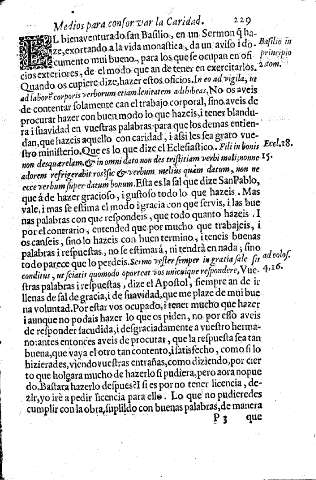 Medios para conservar la Caridad. 229
EL bienaventurado san Basilio, en un Sermon q̃ ha-
ze, exortando a la vida monastica, da un aviso i do-
cumento mui bueno, para los que se ocupan en ofi-
cios exteriores, de el modo que an de tener en exercitarlos.
Basilio in
principio
2. tom.
Quando os cupiere, dize, hazer estos oficios. In eo ad vigila, ne
ad laborẽ corporis verborum etiam lenitatem adhibeas. No os aveis
de contentar solamente con el trabajo corporal, sino aveis de
procurar hazer con buen modo lo que hazeis, i tener blandu-
ra i suavidad en vuestras palabras para que los demas entien-
dan, que hazeis aquello con caridad, i assi les sea grato vue-
stro ministerio. Que es lo que dize el Eclesiastico. Fili in bonis
Eccl. 18.
15.
non des querelam, & in omni dato non des tristitiam verbi mali, nonne
adorem refrigerabit ros? sic & verbum melius quàm datum, non ne
ecce verbum super datum bonum. Esta es la sal que dize San Pablo,
que à de hazer gracioso, i gustoso todo lo que hazeis. Mas
vale, i mas se estima el modo i gracia con que servis, i las bue
nas palabras con que respondeis, que todo quanto hazeis. I
por el contrario, entended que por mucho que trabajeis, i
os canseis, sino lo hazeis con buen termino, i teneis buenas
palabras i respuestas, no se estimarà, ni tendrà en nada; sino
todo parece que lo perdeis. Sermo vester semper in gratia sale sit
ad colos.
4, 16.
conditus, ut sciatis quomodo oporteat vos unicuique respondere, Vue-
stras palabras i respuestas, dize el Apostol, siempre an de ir
llenas de sal de gracia, i de suavidad, que me plaze de mui bue
na voluntad. Por estar vos ocupado, i tener mucho que hazer
i aunque no podais hazer lo que os piden, no por esso aveis
de responder sacudida, i desgraciadamente a vuestro herma-
no: antes entonces aveis de procurar, que la respuesta sea tan
buena, que vaya el otro tan contento, i satisfecho, como si lo
hizierades, viendo vuestras entrañas, como diziendo, por cier
to que holgara mucho de hazerlo si pudiera, pero aora no pue
do. Bastara hazerlo despues? I si es por no tener licencia, de-
zir, yo irè a pedir licencia para ello. Lo que no pudieredes
cumplir con la obra, suplildo con buenas palabras, de manera
P 3 que